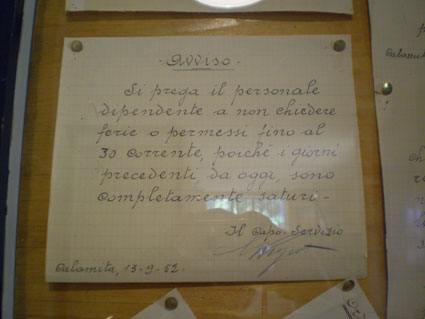 - Avviso -
Si prega il personale
dipendente a non chiedere
ferie o permessi fino al
30 corrente, poiché i giorni
precedenti da oggi, sono
completamente saturi -
Il Capo-Servizio
Calamita, 13-9-62.
Calamita